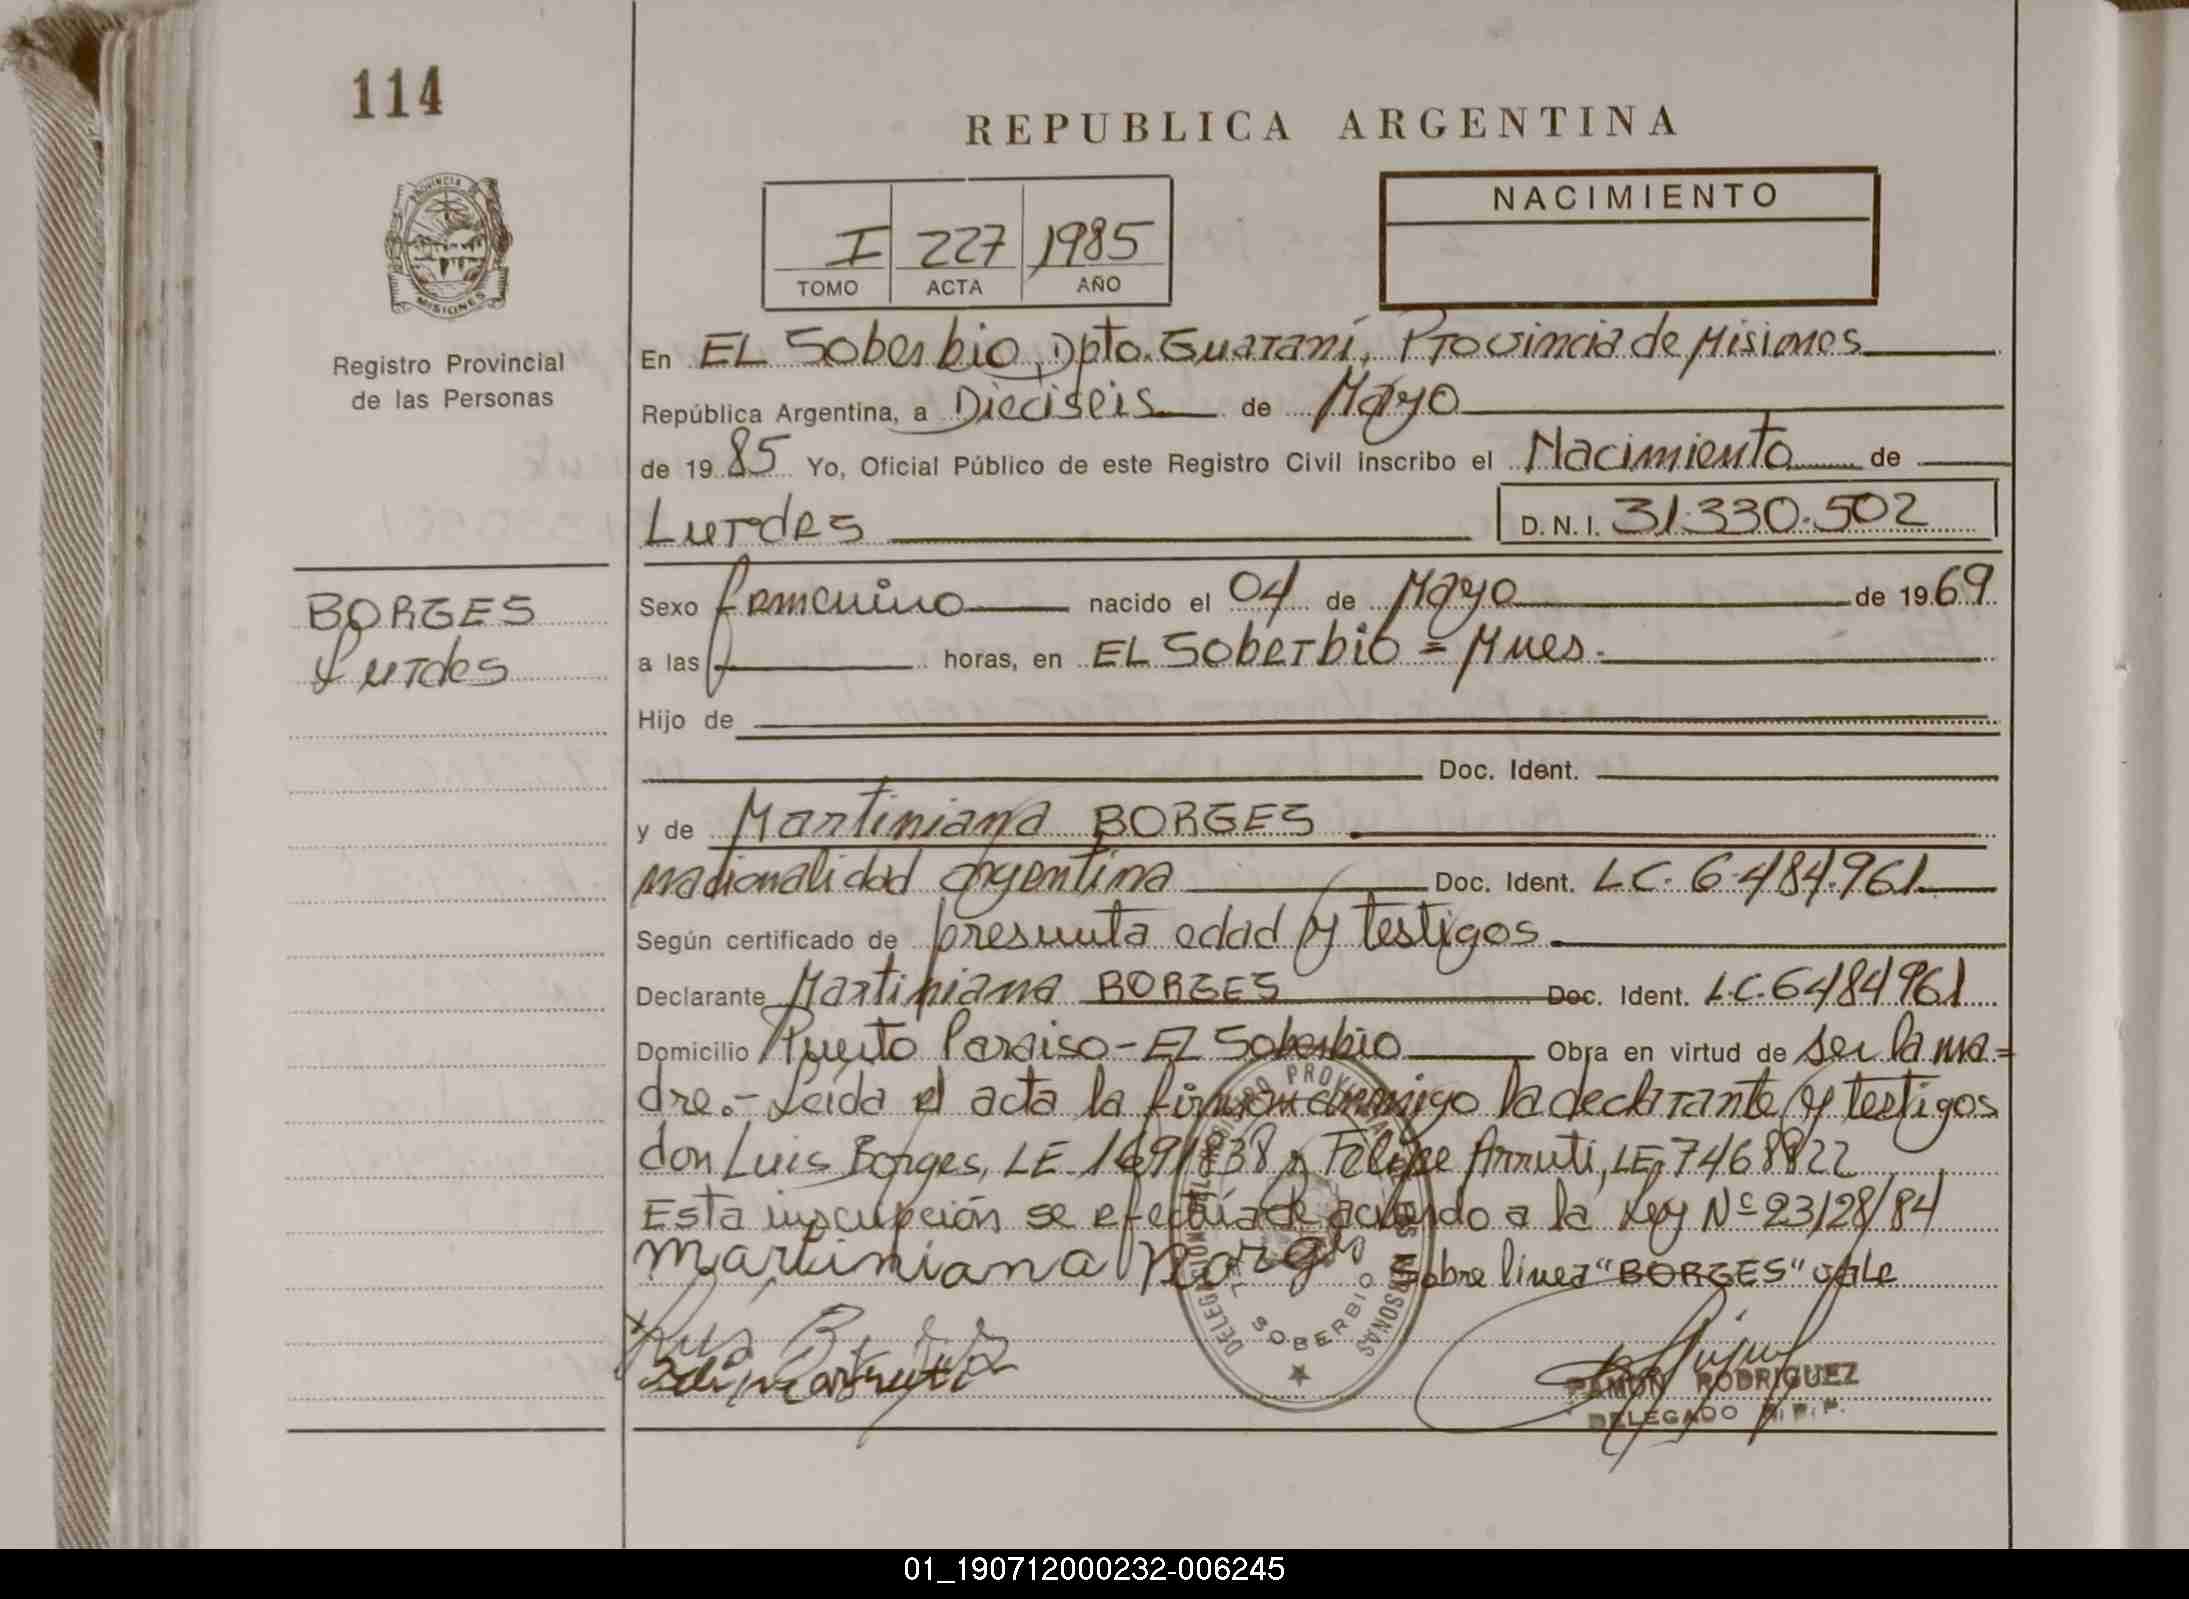 114
REPUBLICA ARGENTINA
PROVINCIA
MISIONES
Registro Provincial
de las Personas
I 227 1985
TOMO ACTA AÑO
NACIMIENTO
En EL Soberbio, Dpto. Guaraní, Provincia de Misiones
República Argentina, a Dieciseis de Mayo
de 19 85 Yo, Oficial Público de este Registro Civil inscribo el Nacimiento de
Lurdes D. N. I. 31.330.502
BORGES
Lurdes
Sexo femenino nacido el 04 de Mayo de 19 69
a las horas, en EL Soberbio = Mnes.
Hijo de
Doc. Ident.
y de Martiniana BORGES
nacionalidad argentina Doc. Ident. L.C. 6.484.961
Según certificado de presunta edad y testigos
Declarante Martiniana BORGES Doc. Ident. L.C. 6484961
Domicilio Puerto Paraiso - El Soberbio Obra en virtud de ser la ma=
dre.- Leida el acta la firman conmigo la declarante y testigos
don Luis Borges, LE 1691838 y Felipe Arruti, LE 7468822
Esta inscripción se efectúa de acuerdo a la Ley Nº 23128/84
Martiniana Sobre linea "BORGES" vale
REGISTRO PROVINCIAL DE LAS PERSONAS
DELEGACION EL SOBERBIO
RAMON RODRIGUEZ
DELEGADO R. P. P.
01_190712000232-006245